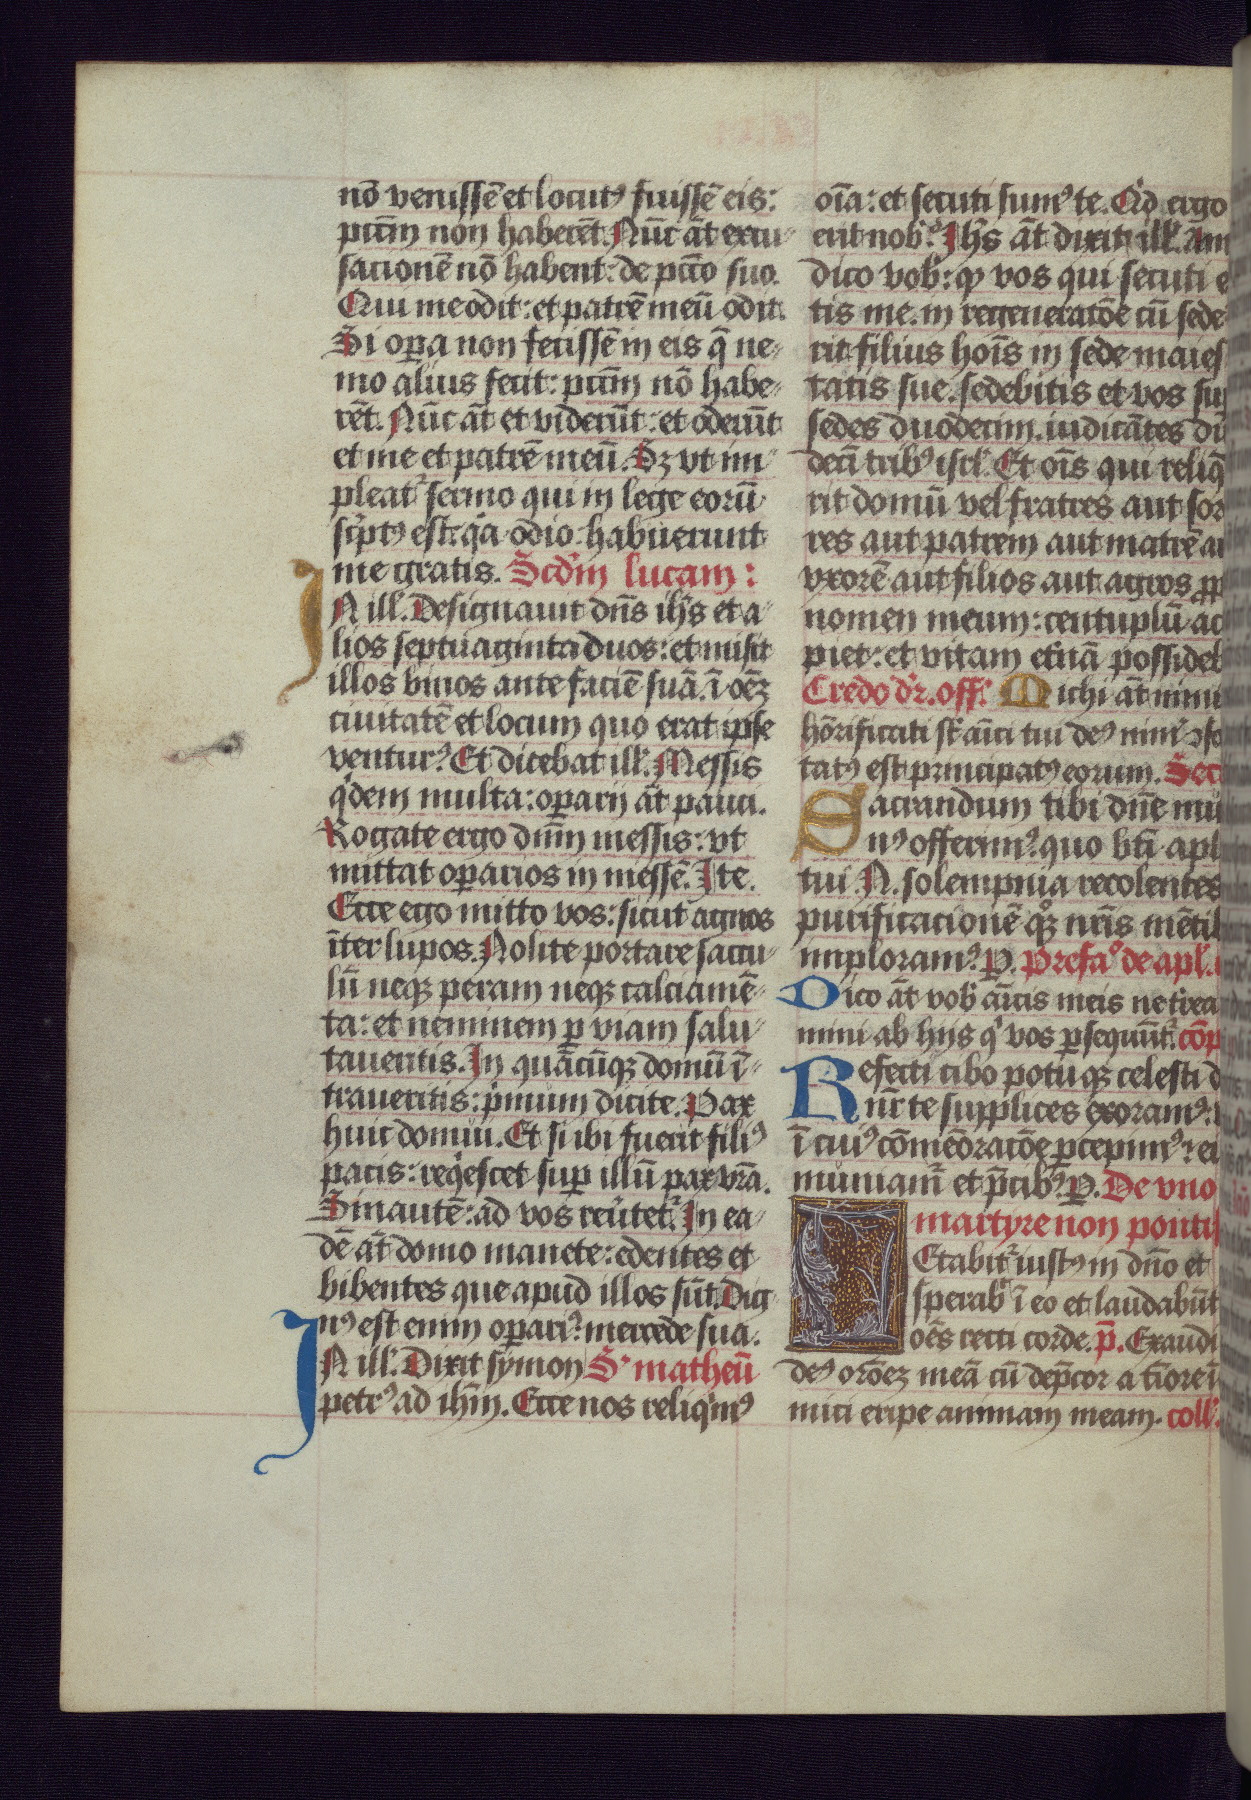 nō venissē et locutꝰ fuissē eis:
pctm̄ non haberēt. Nūc āt excu-
sacionē nō habent: de pctō suo.
Qui me odit: et patrē meū odit.
Si opa non fecissē in eis q̄ ne-
mo alius fecit: pctm̄ nō habe-
rēt. Nūc āt et viderūt: et oderūt
et me et patrē meū. Sz vt im-
pleat᷑ sermo qui in lege eorū
scͥptꝰ est: qͥa odio habuerunt
me gratis. Scd̄m lucam:
IN ill'. Designauit dn̄s ih̄s et a-
lios septuaginta duos: et misit
illos binos ante faciē suā. ī oēz
ciuitatē et locum quo erat ipse
venturꝰ. Et dicebat ill'. Messis
qͥdem multa: operarij āt pauci.
Rogate ergo dn̄m messis: vt
mittat operarios in messē. Ite.
Ecce ego mitto vos: sicut agnos
īter lupos. Nolite portare saccu-
lū neqꝫ peram neqꝫ calciamē-
ta: et neminem ꝑ viam salu-
taueritis. In quācūqꝫ domū ī-
traueritis: pͥmum dicite. Pax
huic domui. Et si ibi fuerit filiꝰ
pacis: reqͥescet sup illū pax vr̄a.
Sin autē: ad vos reu̅tet᷑. In ea-
dē āt domo manete: edentes et
bibentes que apud illos sūt. Dig-
nꝰ est enim operariꝰ mercede sua.
IN ill'. Dixit symon S' matheū
petrꝰ ad ih̄m. Ecce nos reliqͥmꝰ
oīa: et secuti sumꝰ te. Qͥd ergo
erit nob'? Ih̄s āt dixit ill'. Am
dico vob': ꝙ vos qui secuti e
tis me. in regeneratōe cū sede
rit filius hoīs in sede maies
tatis sue. sedebitis et vos su
sedes duodecim. iudicātes du
decī tribꝰ isrl'. Et oīs qui reliq̄
rit domū vel fratres aut sor
res aut patrem aut matrē a
vxorē aut filios aut agros ꝓp
nomen meum: centuplū ac
piet: et vitam et̄nā possideb
Credo dr̄. off'. Michi āt nimi
ho̅rificati st̄ aīci tui deꝰ nimꝭ ꝯfo
tatꝰ est principatꝰ eorum. Sec
Sacrandum tibi dn̄e mu
nꝰ offerimꝰ: quo bt̄i apl
tui N. solempnia recolentes
purificacionē qꝫ nr̄is mētib
imploramꝰ. P. Prefaꝰ de apl'.
Dico āt vob' aīcis meis ne t̄rea
mini ab hijs qͥ vos ꝑsequūt᷑. cōp
Refecti cibo potuqꝫ celesti d
nr̄ te supplices exoramꝰ:
ī cuiꝰ cōmēoratōe ꝑcepimꝰ: e
muniam᷑ et p̄cibꝰ. P. De vno
martyre non ponti
Letabit᷑ iustꝰ in dn̄o et
sperab' ī eo et laudabūt
oēs recti corde. p̄. Exaudi
deꝰ orōez meā cū dep̄cor a tīore ī
mici eripe animam meam. coll'.